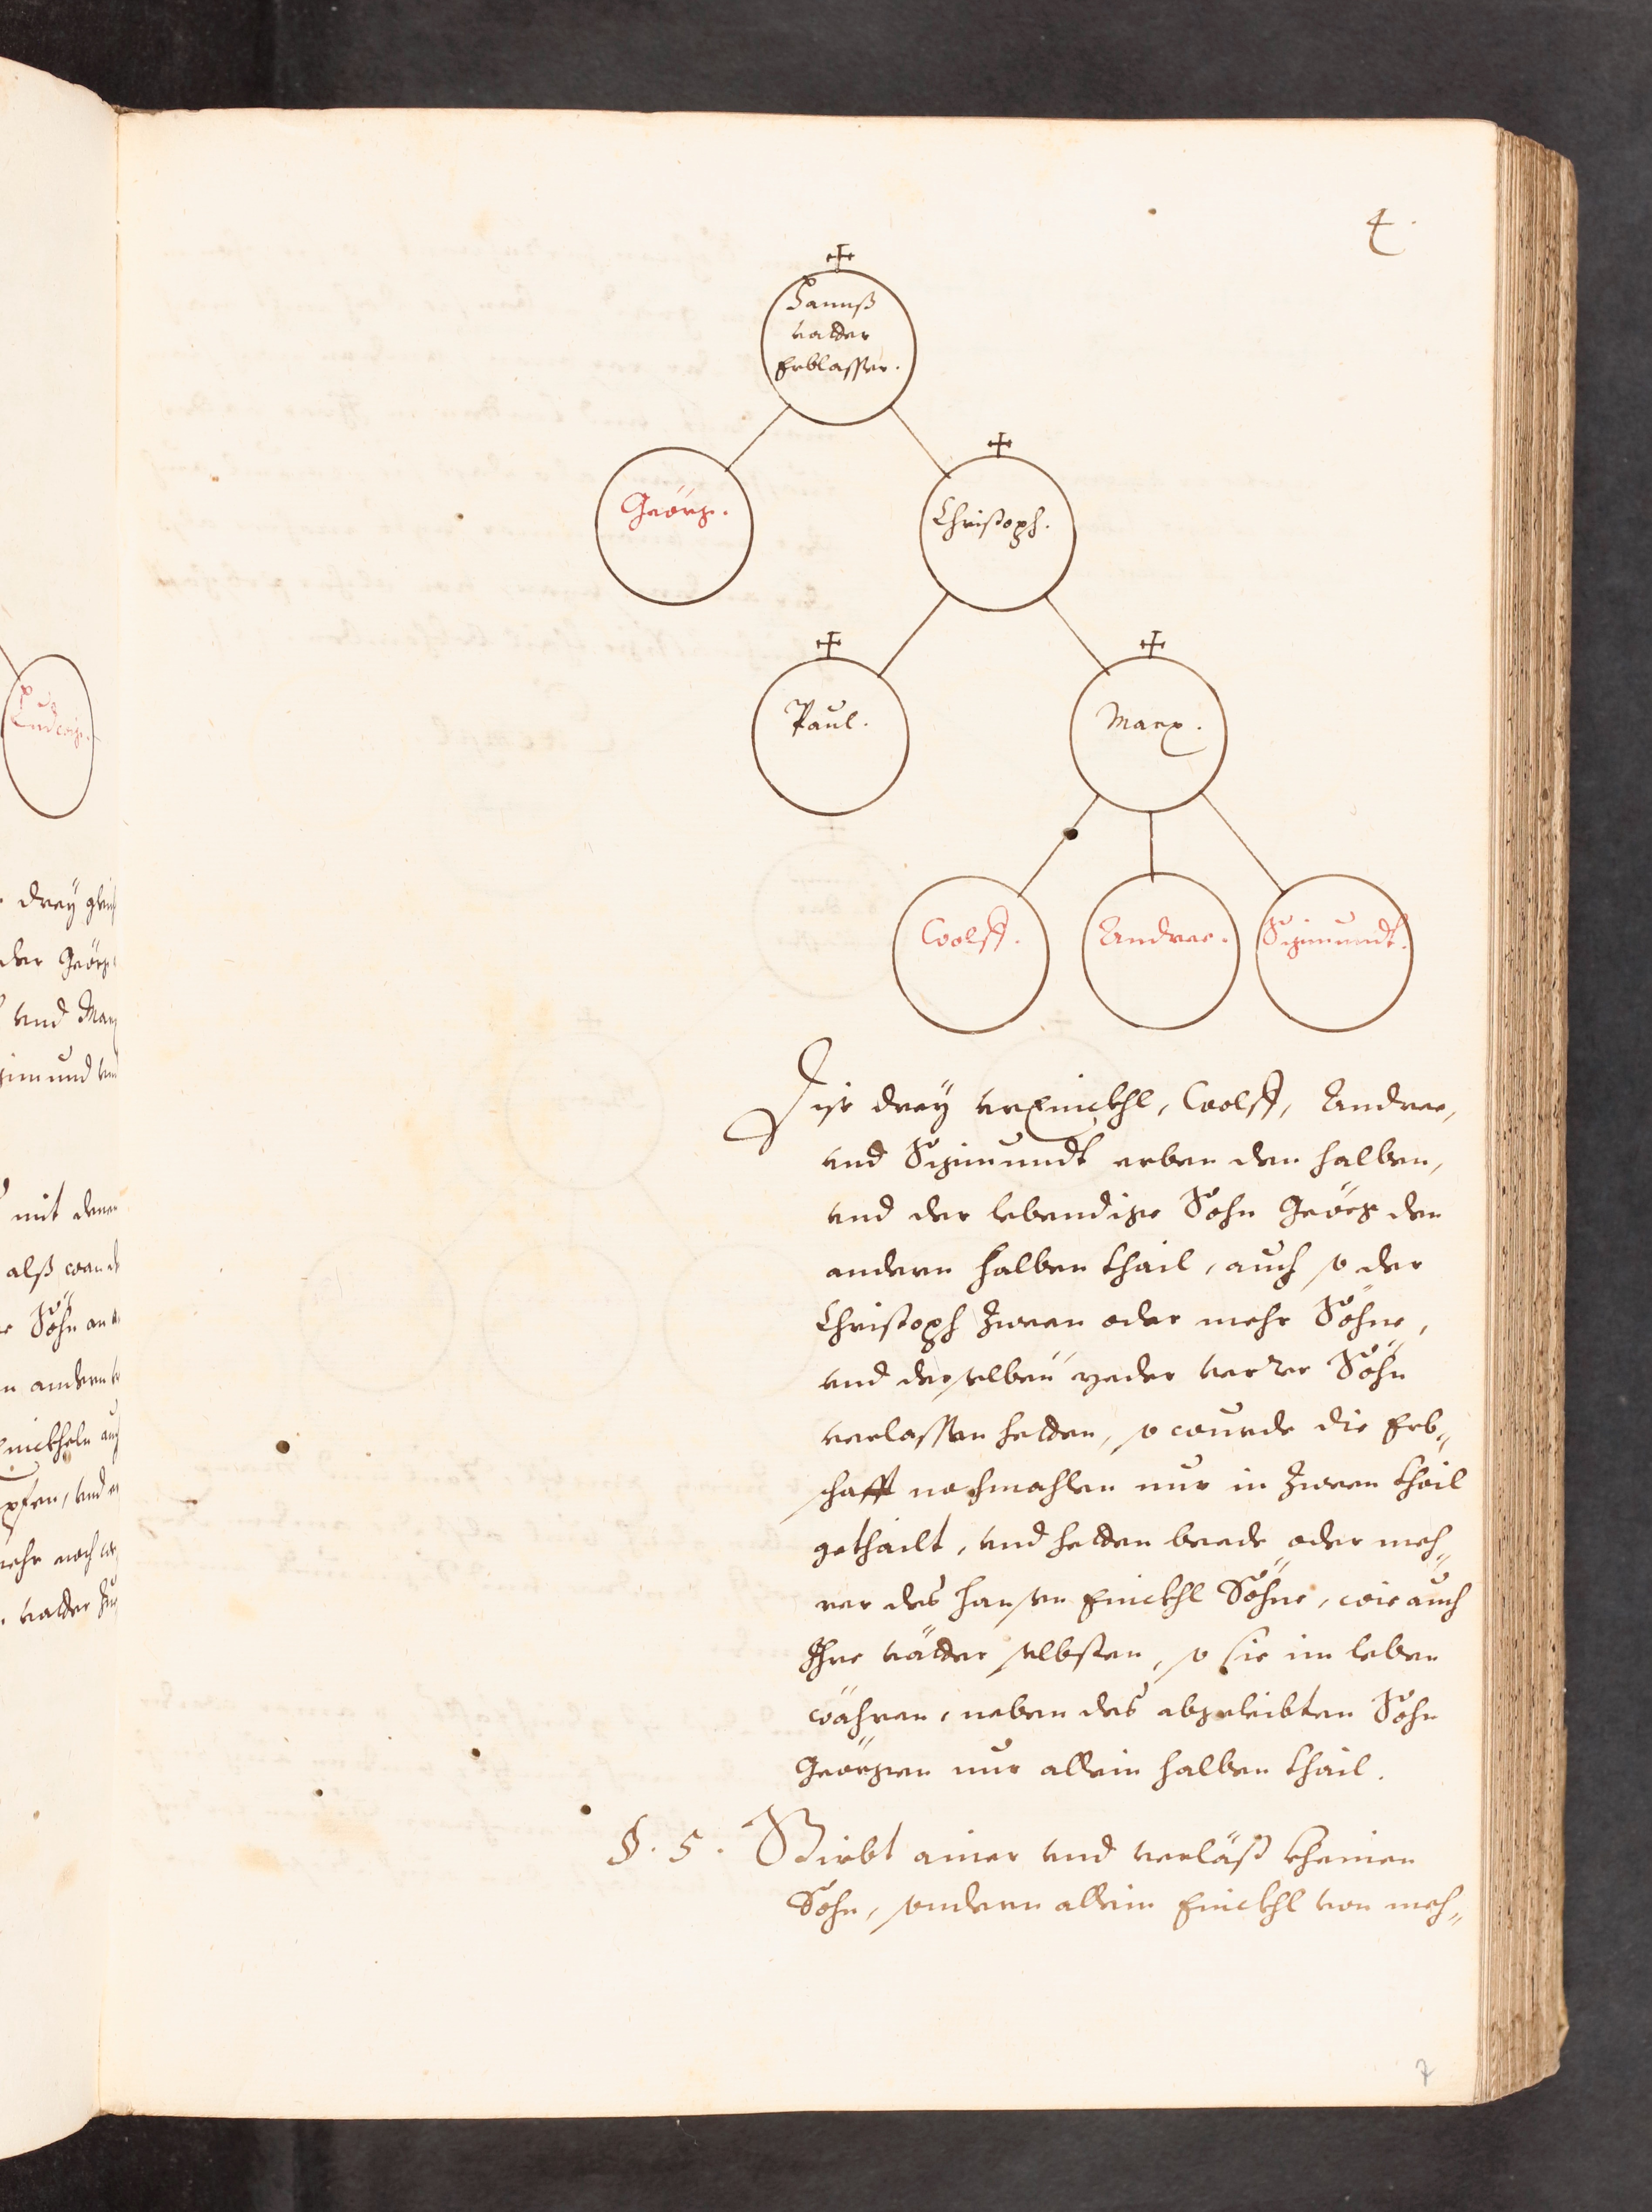 4.
Hannß
vatter
Erblasser.
Geörg.
Christoph.
Paul.
Marx.
Wolff.
Andree.
Sigmundt.
Dise drey vrEinickhl, Wolff, Andree,
vnd Sigmundt erben den halben,
vnd der lebendige Sohn Geörg den
andern halben thail, auch so der
Christoph zween oder mehr Söhne,
vnd derselben yeder Söhn
verlassen hetten, so wurde die Erb„
schafft nochmahlen nur in zween thail
gethailt, vnd hetten beede oder meh„
rer des hansen Einickhl Söhne, wie auch
Ihre vätter selbsten, so sie im leben
währen, neben des abgeleibten Sohn
Geörgen nur allein halben thail.
§. 5. Stirbt ainer vnd verläst kheinen
Sohn, sondern allein Einickhl von meh„
7
Ludwig.
drey gleich
der Geörg
vnd Marx
mit denen
alß wan
Söhn an
andern
vnd
mehr noch
vatter